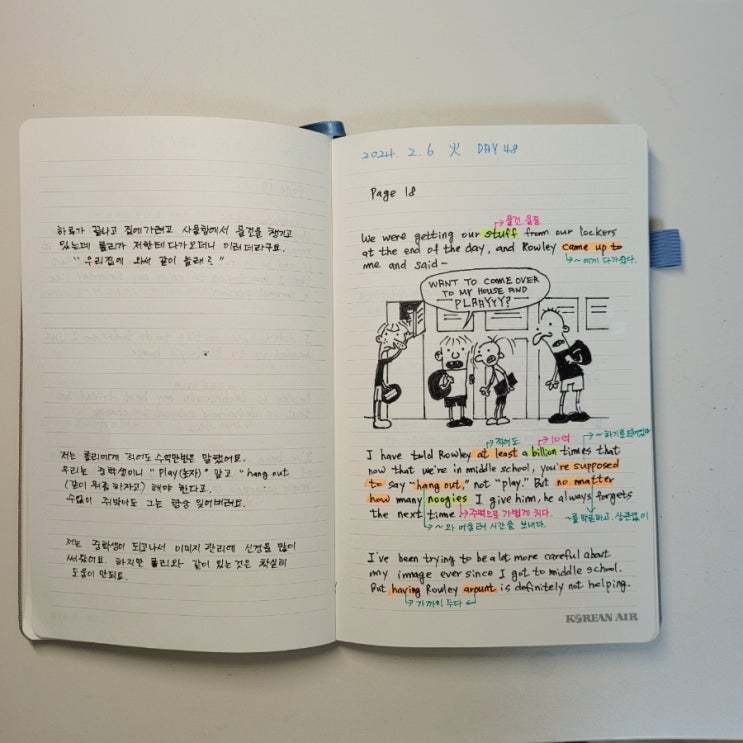 하루가 끝나고 집에 가려고 사물함에서 물건을 챙기고
있는데 롤리가 저한테 다가오더니 이러더라구요.
"우리집에 와서 같이 놀래?"
저는 롤리에게 적어도 수억만번은 말했어요.
우리는 중학생이니 "play(놀자)" 말고 "hang out
(같이 뭐좀 하자고) 해야 한다고.
수없이 쥐박아도 그는 항상 잊어버려요.
저는 중학생이 되고나서 이미지 관리에 신경을 많이
써왔어요. 하지만 롤리와 같이 있는것은 확실히
도움이 안되요.
2024. 2. 6 火 DAY 48
Page 18
물건, 물품
We were getting our stuff from our lockers
at the end of the day, and Rowley came up to
~에게 다가왔다.
me and said-
WANT TO COME OVER
TO MY HOUSE AND
PLAAYYY?
~하기로 되어있다
적어도 10억
I have told Rowley at least a billion times that
now that we're in middle school, you're supposed
to say "hang out," not "play." But no matter
how many noogies I give him, he always forgets
the next time 주먹으로 가볍게 치다. ~를 막론하고. 상관없이
~와 어울러 시간을 보내다.
I've been trying to be a lot more careful about
my image ever since I got to middle school.
But having Rowley arount is definitely not helping.
가까이 두다
KOREAN AIR